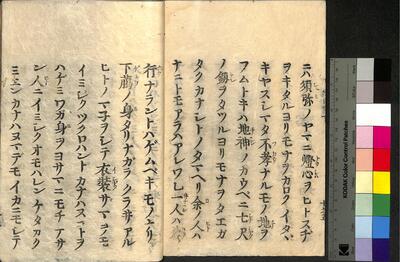 ニハ須弥ノヤマニ燈心ヲヒトスヂ
ヲキタルヨリモナヲカロクイタヾ
キヤスシマタ不孝ナルモノ地ヲ
フムトキハ地神ノカウベニ七尺
ノ釼ヲタツルヨリモナヲタエガ
タクカナシトノタマヘリ余人ハ
ナニトモアラバアレワレ一人ハ
行ナラントハゲムベキモノナリ
下臈ノ身タリナガラクラサアル
ヒトノマネヲシテ衣装サマヲモ
イミジクツクロハントカナハヌマデヲ
ハゲミワガ身ヲヨサマニモチアサ
ン人ニイミジクオモハレンケタカク
ミエンカナハヌマデモイカニモシテ
KODAK Color Control Patches